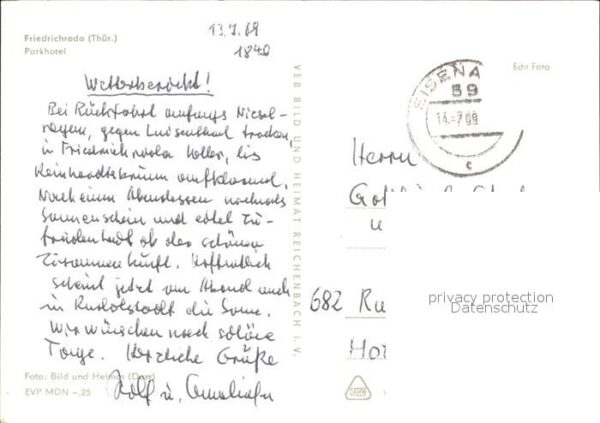 Friedrichroda (Thür.)
Parkhotel
13.7.69
1840
Wetterbericht!
Bei Rückfahrt anfangs Niesel-
regen, gegen Luisenthal trocken,
in Friedrichroda heller, bis
Reinhardsbrunn aufklarend.
Nach einem Abendessen nochmals
Sonnenschein und eitel Zu-
friedenheit ob der schönen
Zusammenkunft. Hoffentlich
scheint jetzt am Abend auch
in Rudolstadt die Sonne.
Wir wünschen noch schöne
Tage. Herzliche Grüße
Rolf u.
Foto: Bild und Heimat
EVP MDN -,25
VEB BILD UND HEIMAT REICHENBACH I. V.
Echt Foto
EISENA
59
14.-7.69
c
Herrn
u
682 Ru
privacy protection
Datenschutz